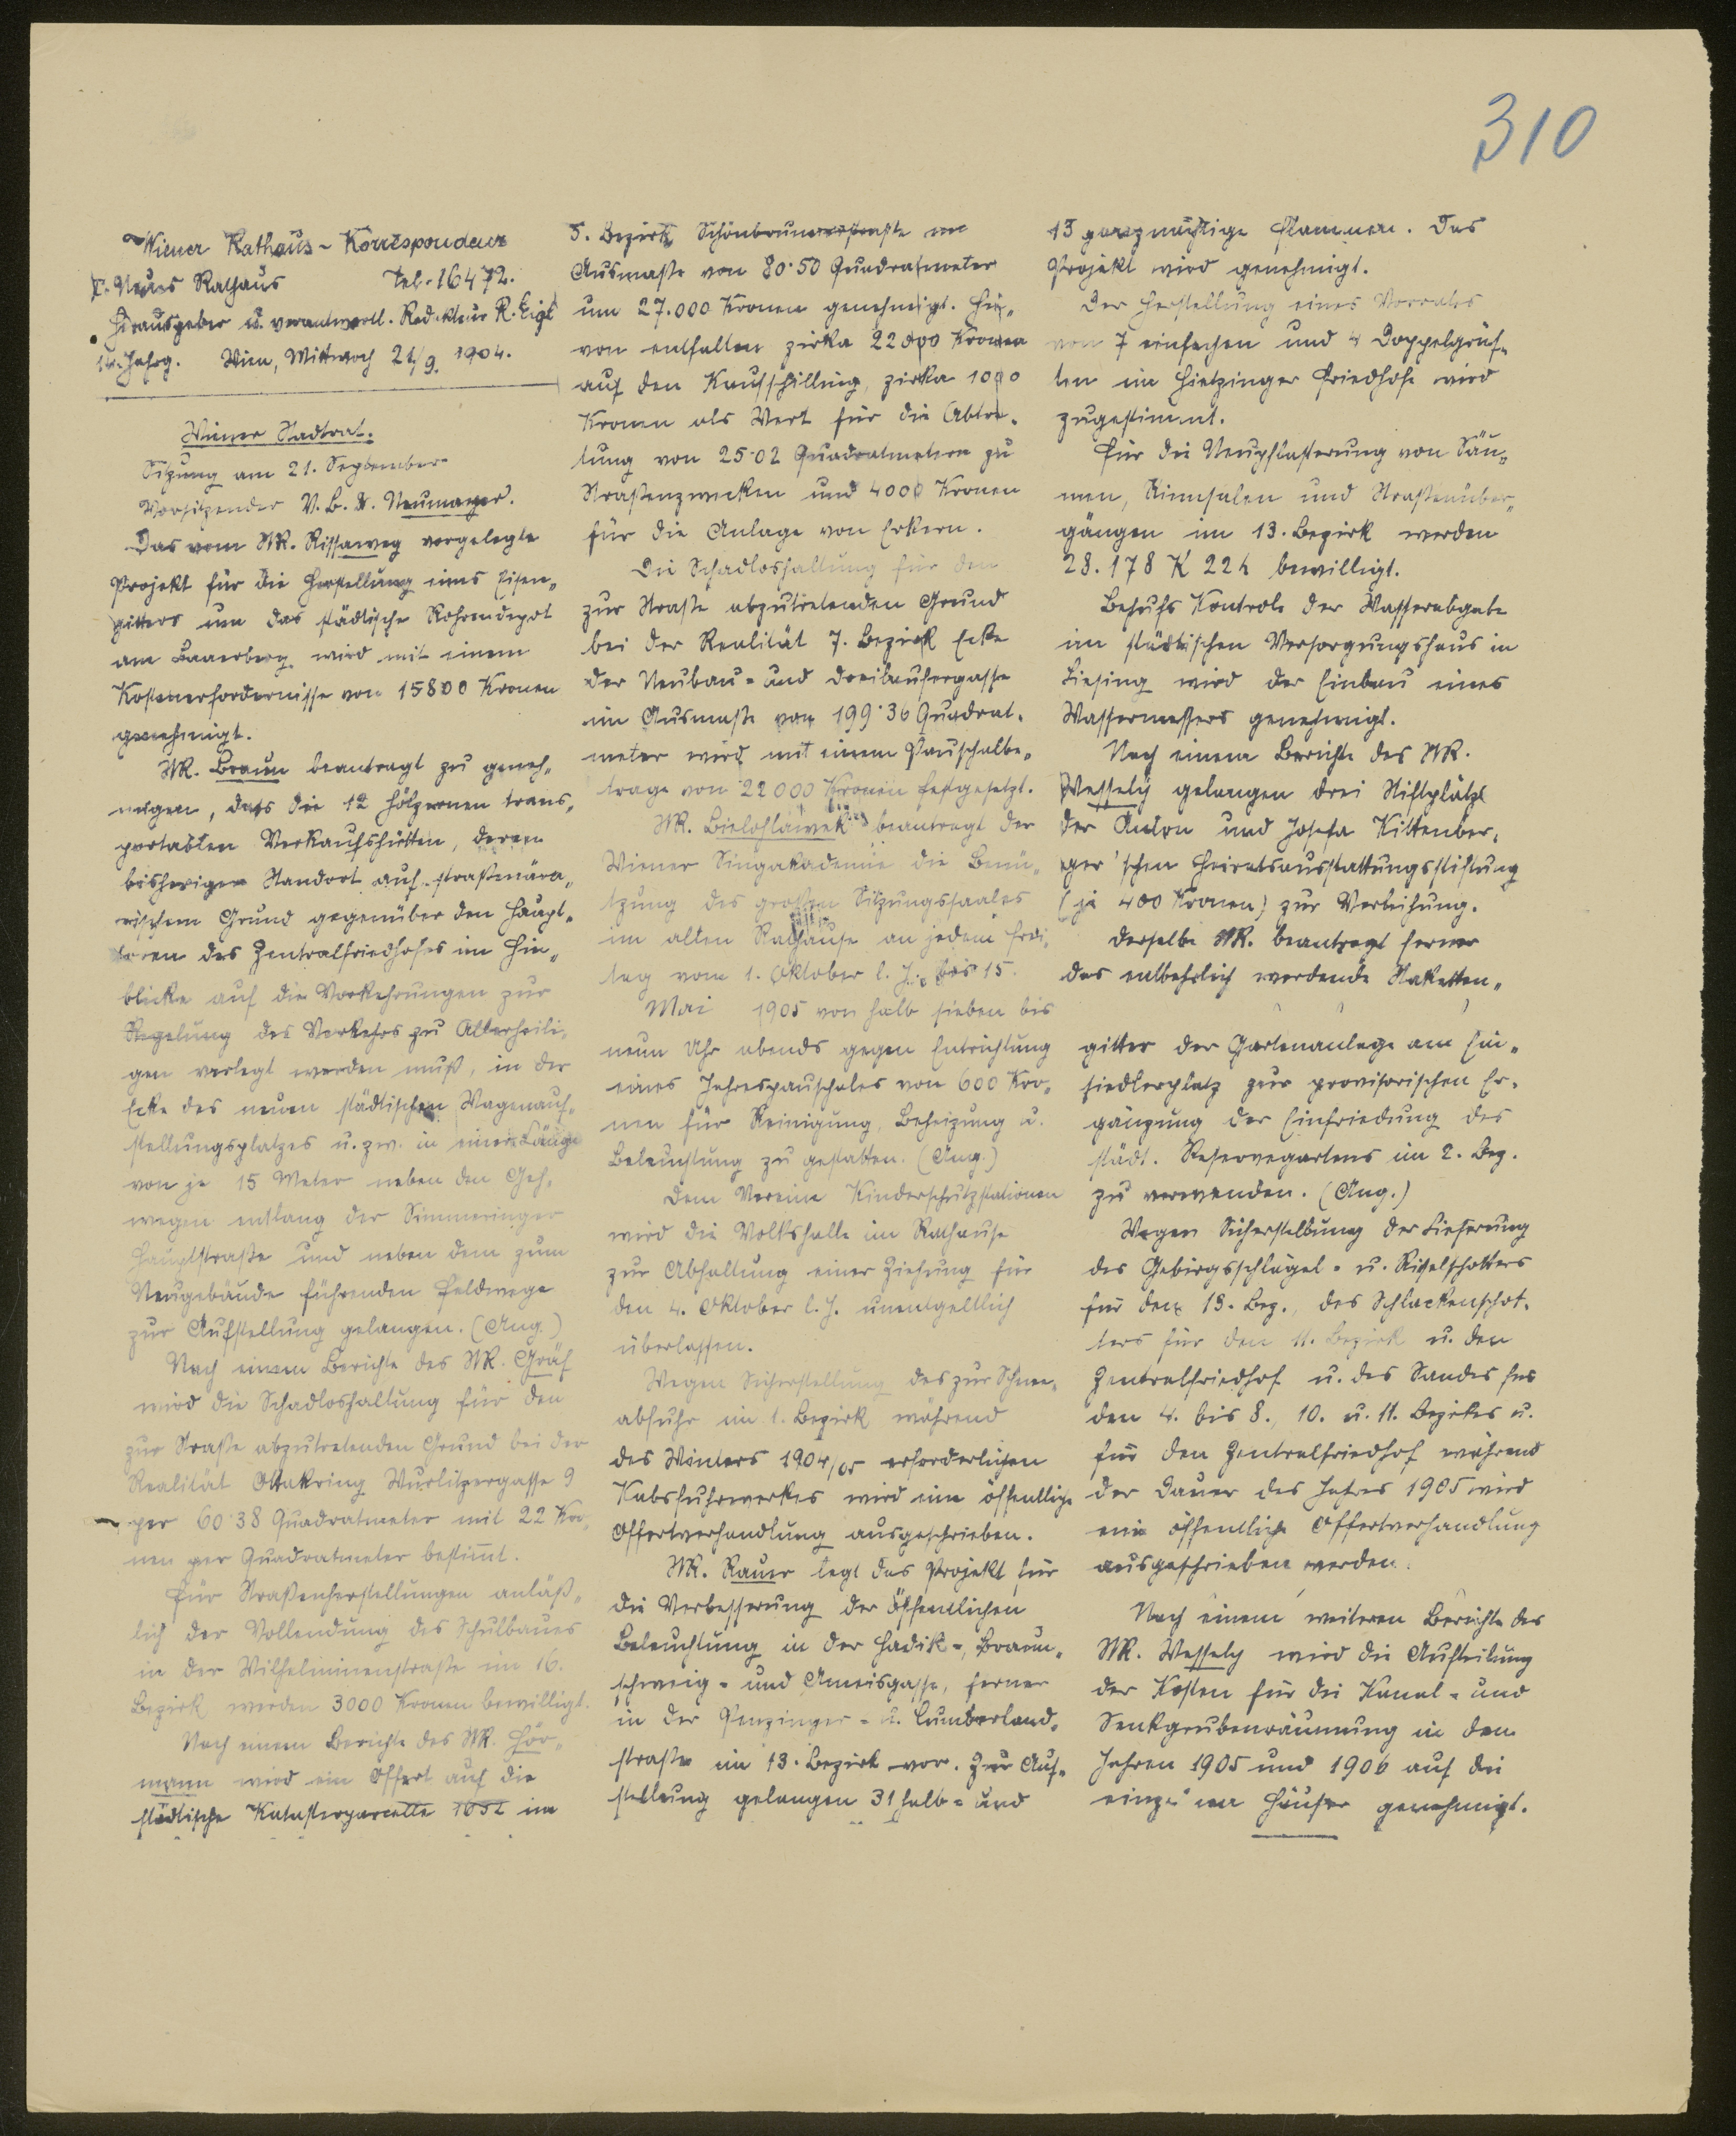 310
Wiener Rathaus-Korrespondenz
I. Neues Rathaus Tel. 16472.
Herausgeber u. verantwortl. Redakteur R. Eigl
14. Jahrg. Wien, Mittwoch 21/9. 1904.
Wiener Stadtrat.
Sitzung am 21. September
Vorsitzender V.B. Dr. Neumayer.
Das vom StR. Rissaweg vorgelegte
Projekt für die Herstellung eines Eisen-
gitters um das städtische Rohrendepot
am Laaerberg wird mit einem
Kostenerfordernisse von 15800 Kronen
genehmigt.
StR. Braun beantragt zu geneh-
migen, dass die 12 hölzernen trans-
portablen Verkaufshütten, deren
bisheriger Standort auf straßenära-
rischem Grund gegenüber den Haupt-
toren des Zentralfriedhofes im Hin-
blicke auf die Vorkehrungen zur
Regelung des Verkehrs zu Allerheili-
gen verlegt werden muß, in der
Ecke des neuen städtischen Wagenauf-
stellungsplatzes u. zw. in einer Länge
von je 15 Meter neben den Geh-
wegen entlang der Simmeringer
Hauptstraße und neben dem zum
Neugebäude führenden Feldwege
zur Aufstellung gelangen. (Ang.)
Nach einem Berichte des StR. Gräf
wird die Schadloshaltung für den
zur Straße abzutretenden Grund bei der
Realität Ottakring Wurlitzergasse 9
per 60·38 Quadratmeter mit 22 Kro-
nen per Quadratmeter bestimmt.
Für Straßenherstellungen anläß-
lich der Vollendung des Schulbaues
in der Wilhelminenstraße im 16.
Bezirk werden 3000 Kronen bewilligt.
Nach einem Berichte des StR. Hör-
mann wird ein Offert auf die
städtische Katasterparcelle 1652 im
5. Bezirk, Schönbrunnerstraße im
Ausmaße von 80·50 Quadratmeter
um 27.000 Kronen genehmigt. Hie-
von entfallen zirka 22000 Kronen
auf den Kaufschilling, zirka 1000
Kronen als Wert für die Abtre-
tung von 25·02 Quadratmetern zu
Straßenzwecken und 4000 Kronen
für die Anlage von Erkern.
Die Schadloshaltung für den
zur Straße abzutretenden Grund
bei der Realität 7. Bezirk Ecke
der Neubau- und Dreilaufergasse
im Ausmaße von 199·36 Quadrat-
meter wird mit einem Pauschalbe-
trage von 22000 Kronen festgesetzt.
StR. Bielohlawek beantragt der
Wiener Singakademie die Benü-
tzung des großen Sitzungssaales
im alten Rathause an jedem Frei-
tag vom 1. Oktober l. J. bis 15.
Mai 1905 von halb sieben bis
neun Uhr abends gegen Entrichtung
eines Jahrespauschales von 600 Kro-
nen für Reinigung, Beheizung u.
Beleuchtung zu gestatten. (Ang.)
Dem Vereine Kinderschutzstationen
wird die Volkshalle im Rathause
zur Abhaltung einer Ziehung für
den 4. Oktober l. J. unentgeltlich
überlassen.
Wegen Sicherstellung des zur Schnee-
abfuhr im 1. Bezirk während
des Winters 1904/05 erforderlichen
Kabsfuhrwerkes wird eine öffentliche
Offertverhandlung ausgeschrieben.
StR. Rauer legt das Projekt für
die Verbesserung der öffentlichen
Beleuchtung in der Hadik-, Braun-
schweig- und Ameisgasse, ferner
in der Penzinger- u. Cumberland-
straße im 13. Bezirk vor. Zur Auf-
stellung gelangen 31 halb- und
13 ganznächtige Flammen. Das
Projekt wird genehmigt.
Der Herstellung eines Vorrates
von 7 einfachen und 4 Doppelgrüf-
ten im Hietzinger Friedhofe wird
zugestimmt.
Für die Neupflasterung von Säu-
men, Rinnsalen und Straßenüber-
gängen im 13. Bezirk werden
28.178 K 22 h bewilligt.
Behufs Kontrole der Wasserabgabe
im städtischen Versorgungshaus in
Liesing wird der Einbau eines
Wassermessers genehmigt.
Nach einem Berichte des StR.
Wessely gelangen drei Stiftplätze
der Anton und Josefa Kittenber-
ger'schen Heiratsausstattungsstiftung
(je 400 Kronen) zur Verleihung.
Derselbe StR. beantragt ferner
das entbehrlich werdende Staketten-
gitter der Gartenanlage am Ein-
siedlerplatz zur provisorischen Er-
gänzung der Einfriedung des
städt. Reservegartens im 2. Bez.
zu verwenden. (Ang.)
Wegen Sicherstellung der Lieferung
des Gebirgsschlägel- u. Rieselschotters
für den 13. Bez., des Schlackenschot-
ters für den 11. Bezirk u. den
Zentralfriedhof u. des Sandes für
den 4. bis 8., 10. u. 11. Bezirkes u.
für den Zentralfriedhof während
der Dauer des Jahres 1905 wird
eine öffentliche Offertverhandlung
ausgeschrieben werden.
Nach einem weiteren Berichte des
StR. Wessely wird die Aufteilung
der Kosten für die Kanal- und
Senkgrubenräumung in den
Jahren 1905 und 1906 auf die
einzelnen Häuser genehmigt.